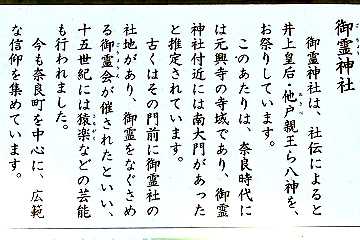 御霊神社
御霊神社は、社伝によると
井上皇后・他戸親王ら八神を、
お祭りしています。
このあたりは、奈良時代に
は元興寺の寺域であり、御霊
神社付近には南大門があった
と推定されています。
古くはその門前に御霊社の
社地があり、御霊をなぐさめ
る御霊会が催されたといい、
十五世紀には猿楽などの芸能
も行われました。
今も奈良町を中心に、広範
な信仰を集めています。